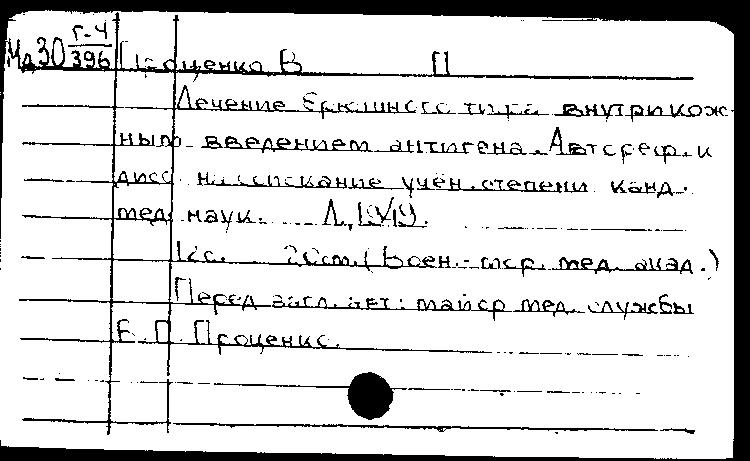 Мд30 Г-4/396 Проценко В П
Лечение брюшного тифа внутрикож-
ным введением антигена. Автореф. к
дисс. на соискание учён. степени канд.
мед. наук. Л., 1949.
12с. 20см. (Воен.-мор. мед. акад.)
Перед загл. авт: майор мед. службы
В. П. Проценко.